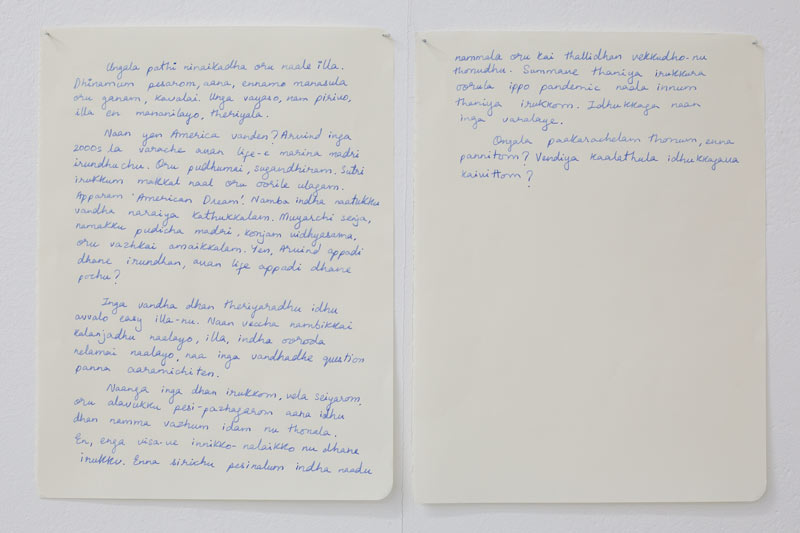 Ungala pathi ninaikadha oru naale illa.
Dhinamum pesarom, aana, ennamo manasula
oru ganam, kavalai. Unga vayaso, nam pirivo,
illa en mananilayo, theriyala.
Naan yen America vanden? Arvind inga
2000s la varache avan life-e marina madri
irundhuchu. Oru pudhumai, sugandhiram. Sutri
irukkum makkal naal oru oorile ulagam.
Apparam 'American Dream'. Namba indha naatukku
vandha naraiya kathukkalam. Muyarchi seija,
namakku pudicha madri, konjam vidhyasama,
oru vazhkai amaikkalam. Yen, Arvind appadi
dhane irundhan, avan life appadi dhane
pochu?
Inga vandha dhan theriyaradhu idhu
avvalo easy illa-nu. Naan veccha nambikkai
kalanjadhu naalayo, illa, indha ooroda
nelamai naalayo, naa inga vandhadhe question
panna aaramichiten.
Naanga inga dhan irukkom, vela seiyarom,
oru alavukku pesi-pazhagarom aana idhu
dhan namma vazhum idam nu thonala.
En, enga visa-ve innikko-nalaikko nu dhane
irukku. Enna sirichu pesinalum indha naadu
nammala oru kai thallidhan vekkudho-nu
thonudhu. Summave thaniya irukkara
oorula ippo pandemic naala innum
thaniya irukkom. Idhukkaga naan
inga varalaye.
Ongala paakarachelam thonum, enna
pannitom? Vendiya kaalathula idhukkagava
kaivittom?